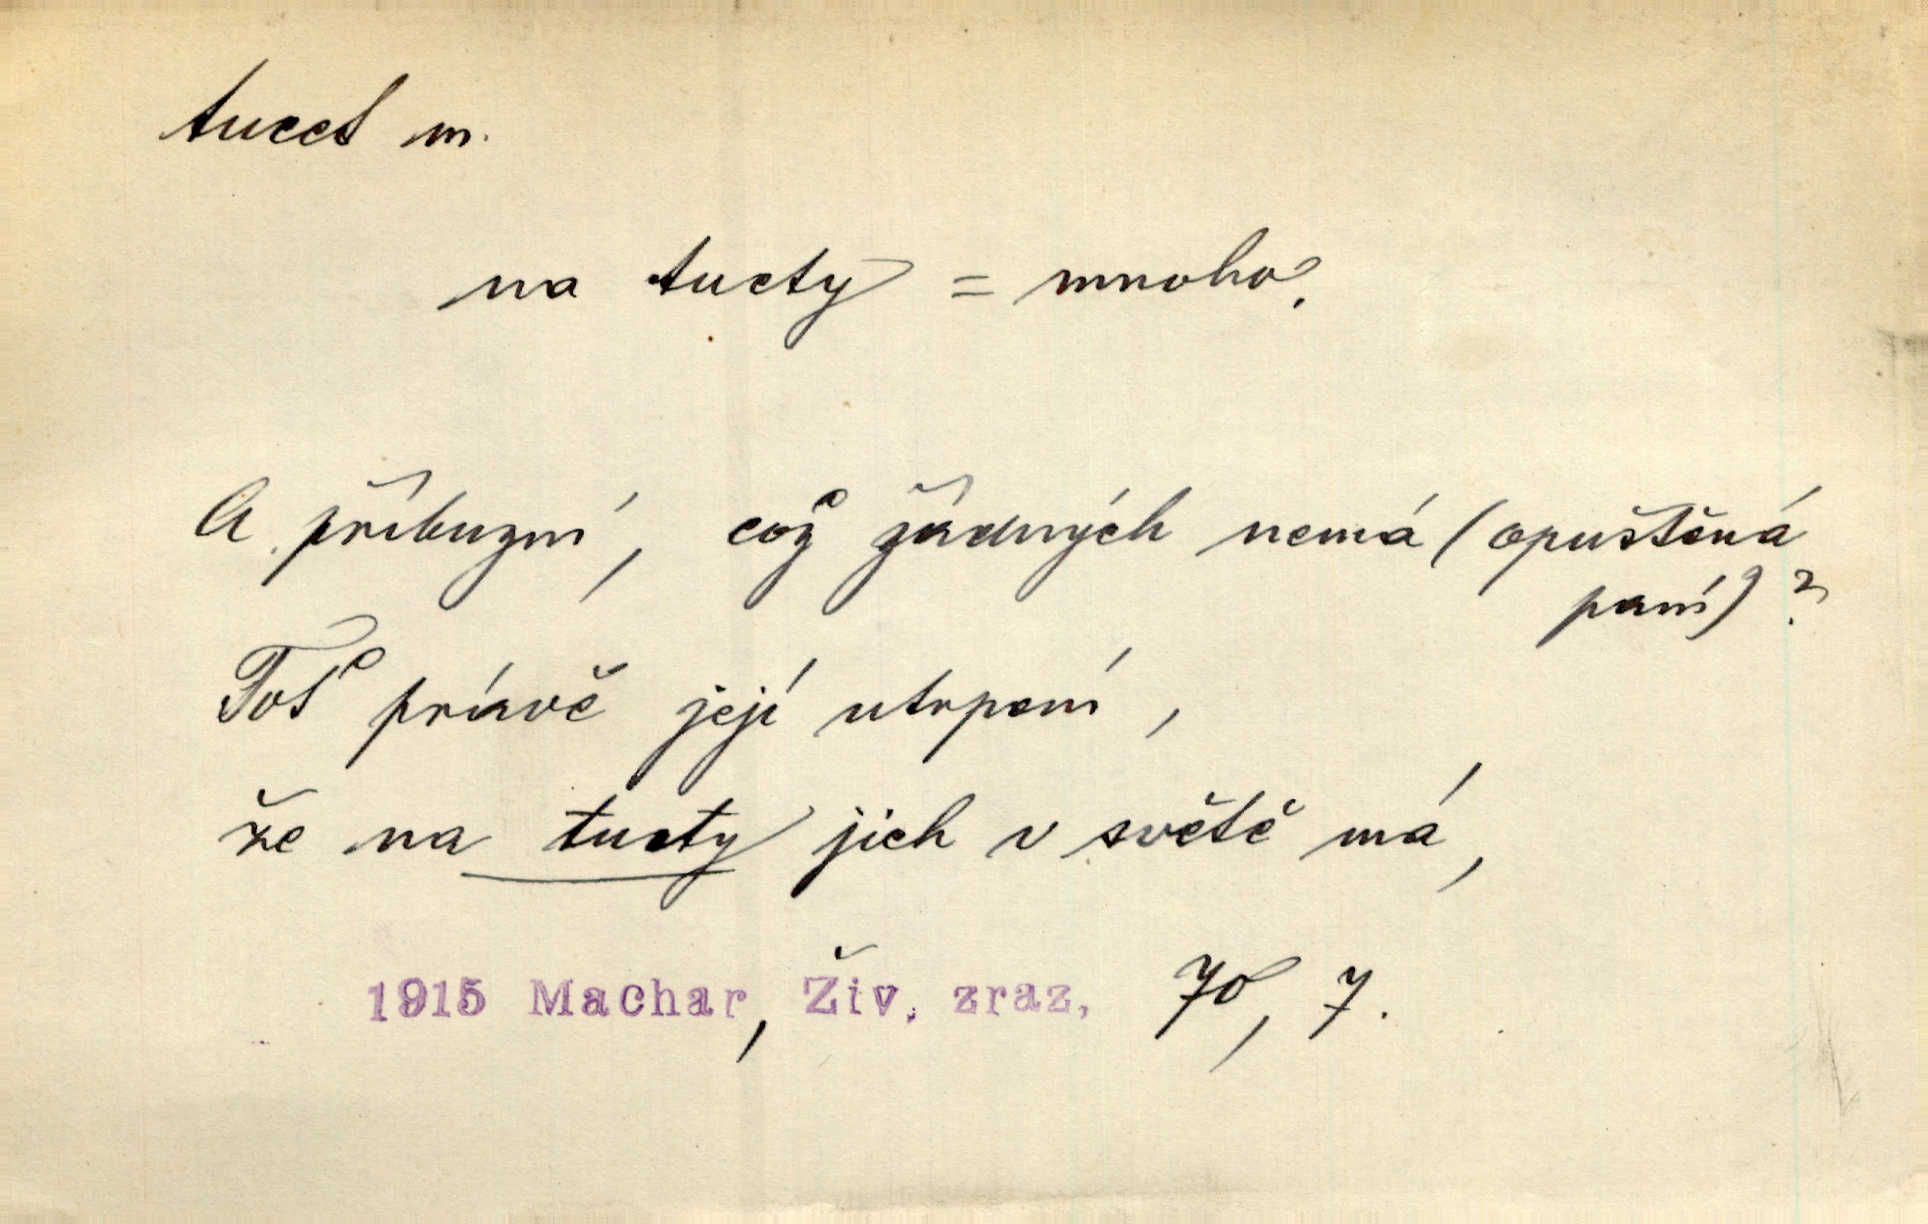 tucet m.
na tucty = mnoho.
A příbuzní, což žádných nemá (opuštěná
paní)?
Toť právě její utrpení,
že na tucty jich v světě má,
1915 Machar, Živ. zraz, 70, 7.